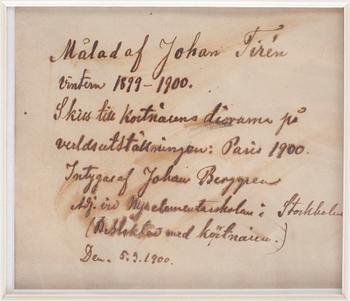 Målad af Johan Tirén
vintern 1899–1900.
Skiss till konstnärens diorama på
verldsutställningen: Paris 1900.
Intygas af Johan Berggren
Adj. vid Nya elementarskolan i Stockholm
(Beslägtad med konstnären.)
Den. 5.9.1900.